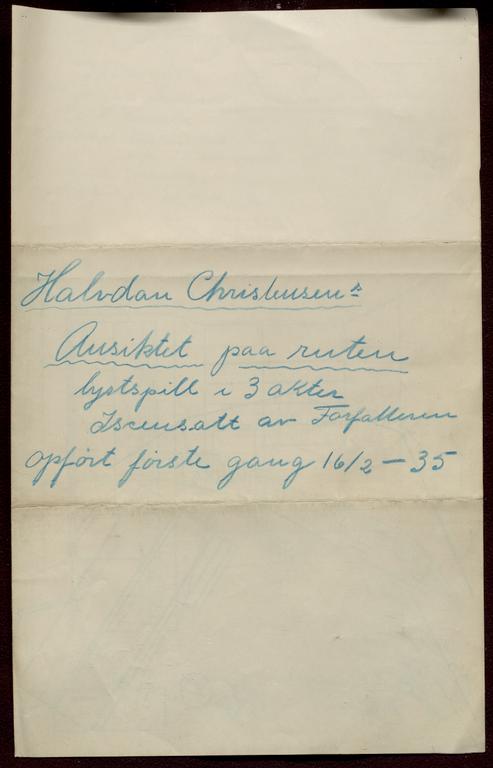 Halvdan Christensens
Ansiktet paa ruten
lystspill i 3 akter
Iscensatt av Forfatteren
opført første gang 16/2 - 35